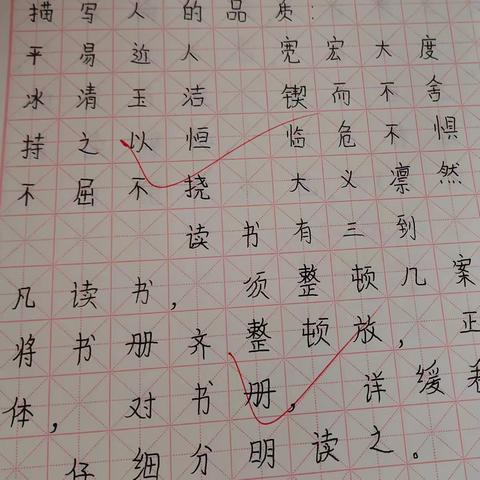 描写人的品质:
平易近人 宽宏大度
冰清玉洁 锲而不舍
持之以恒 临危不惧
不屈不挠 大义凛然
读书有三到
凡读书,须整顿几案
将书册齐整顿放,正
体,对书册,详缓看
仔细分明读之。